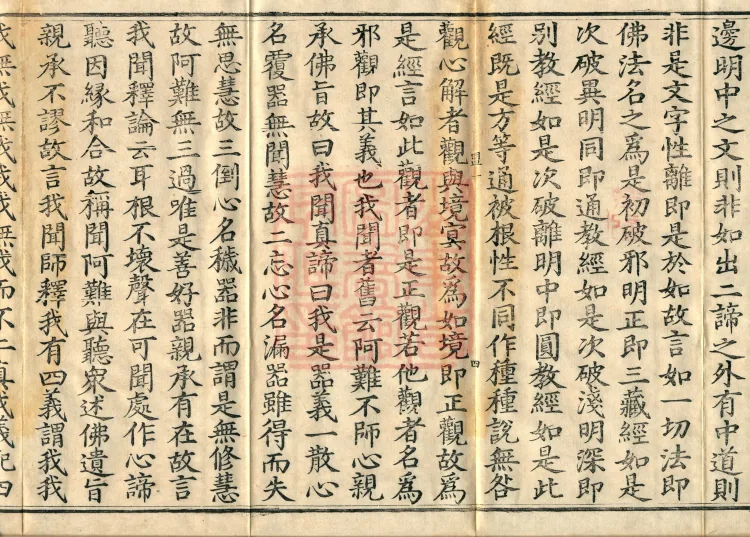 邊明中之文則非如出二諦之外有中道則
非是文字性離即是於如故言如一切法即
佛法名之為是初破邪明正即三藏經如是
次破異明同即通教經如是次破淺明深即
別教經如是次破離明中即圓教經如是此
經既是方等通被根性不同作種種說無咎
觀心解者觀與境冥故為如境即正觀故為
是經言如此觀者即是正觀若他觀者名為
邪觀即其義也我聞者舊云阿難不師心親
承佛旨故曰我聞真諦曰我是器義一散心
名覆器無聞慧故二忘心名漏器雖得而失
無思慧故三倒心名穢器非而謂是無修慧
故阿難無三過唯是善好器親承有在故言
我聞釋論云耳根不壞聲在可聞處作心諦
聽因緣和合故稱聞阿難與聽眾述佛遺旨
親承不謬故言我聞師釋我有四義謂我我